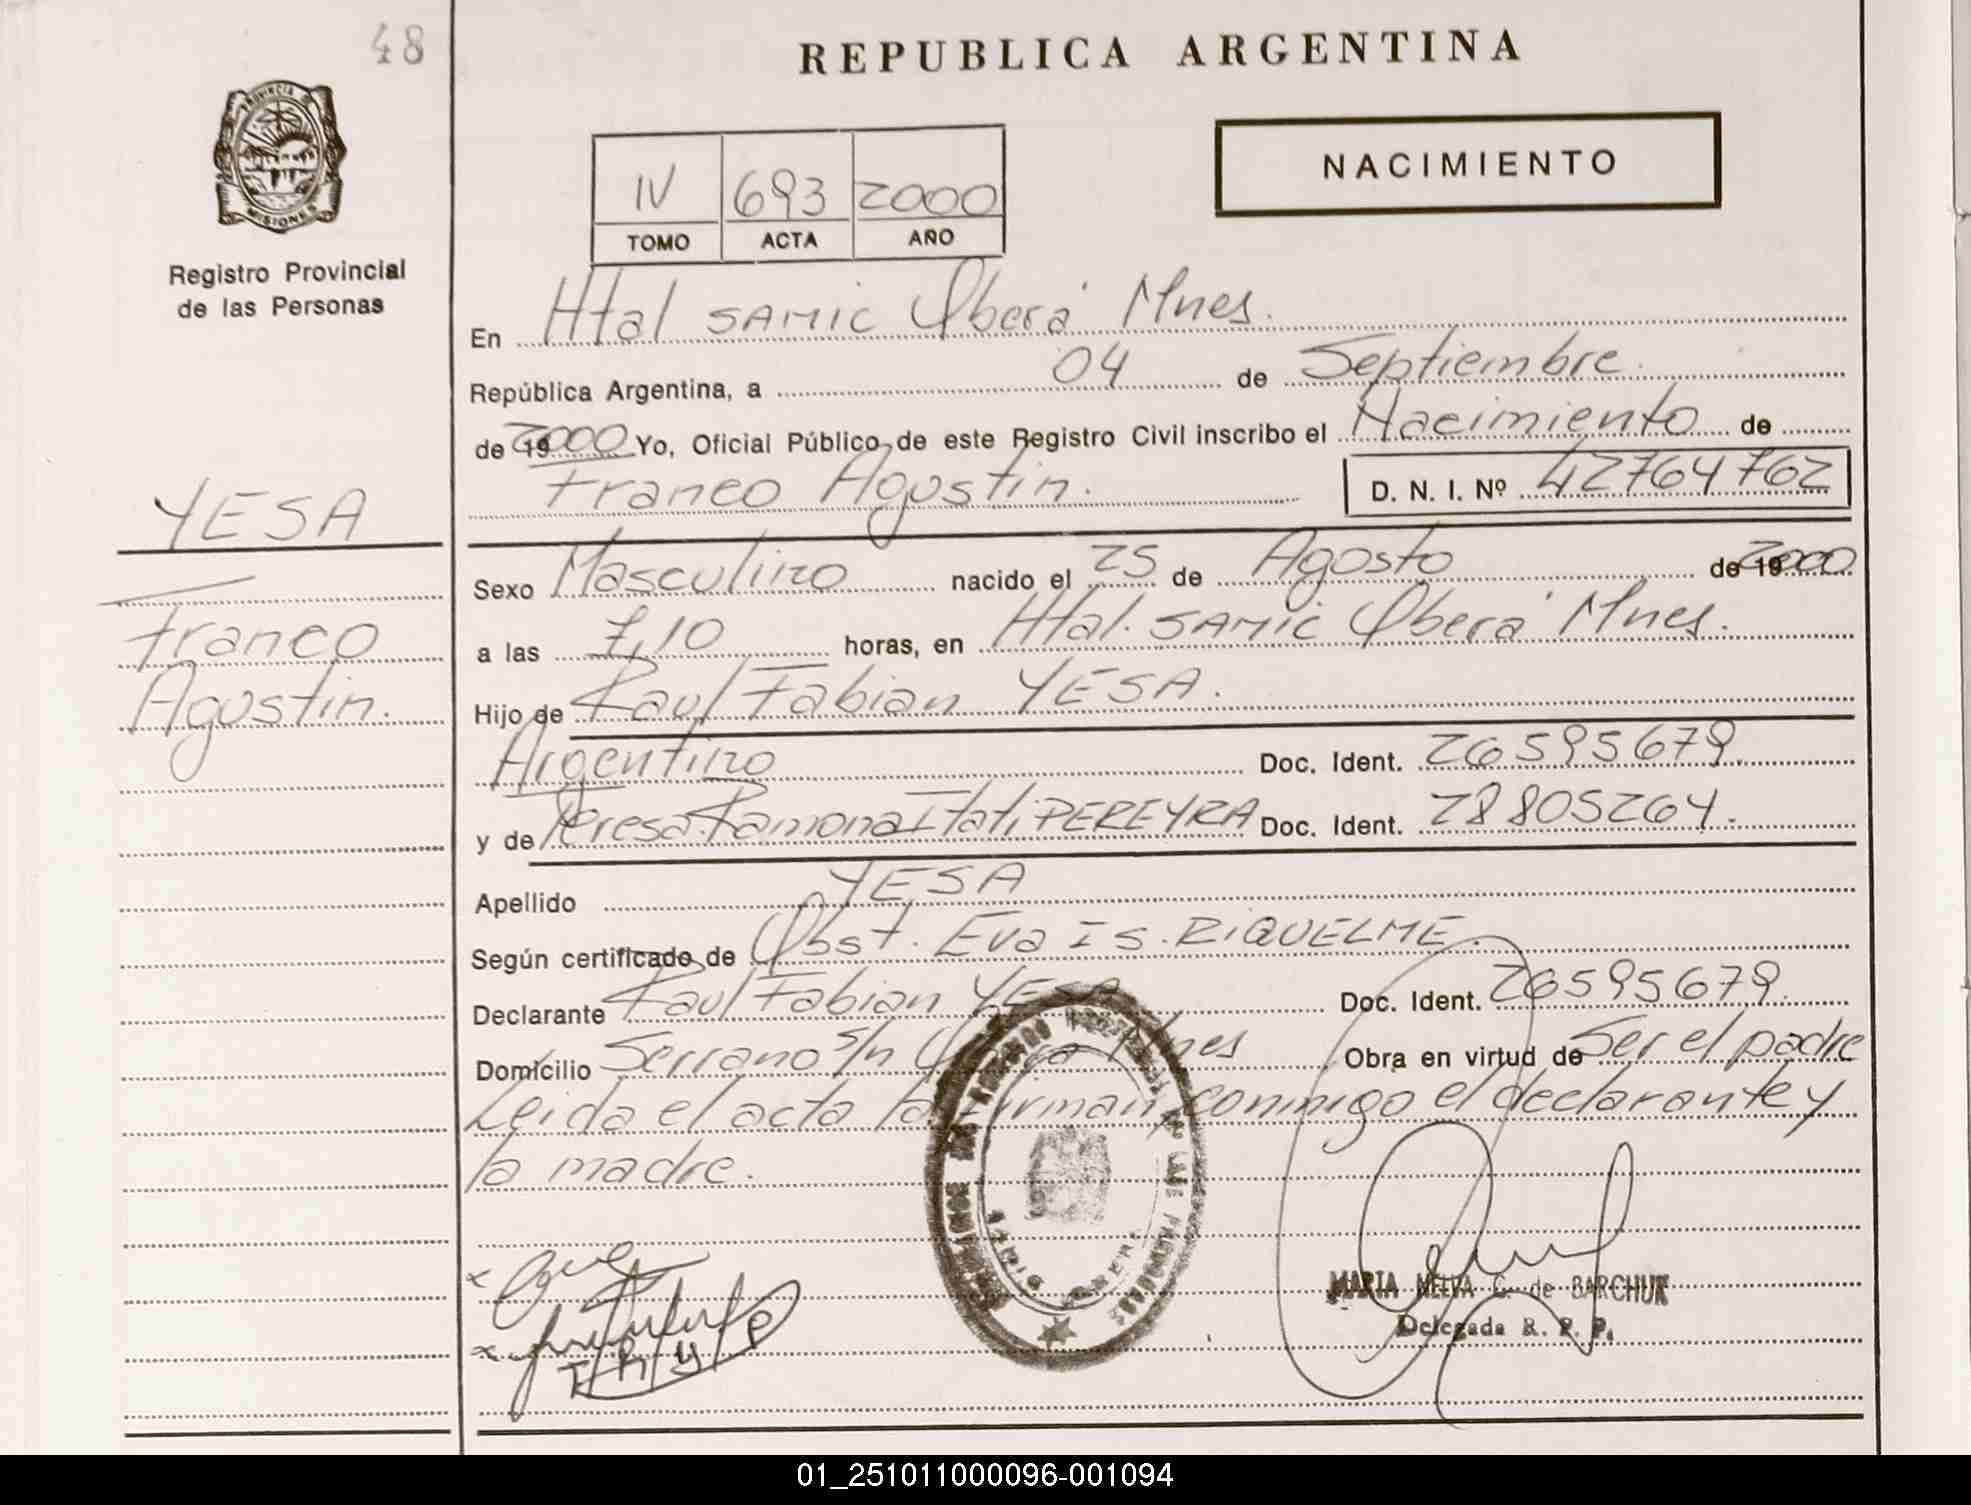 48
REPUBLICA ARGENTINA
PROVINCIA DE
MISIONES
Registro Provincial
de las Personas
IV 693 2000
TOMO ACTA AÑO
NACIMIENTO
En Htal SAMIC Oberá Mnes.
República Argentina, a 04 de Septiembre.
de 192000 Yo, Oficial Público de este Registro Civil inscribo el Nacimiento de
Franco Agustin. D. N. I. Nº 42764762
YESA
Franco
Agustin.
Sexo Masculino nacido el 25 de Agosto de 192000
a las 7,10 horas, en Htal. SAMIC Oberá Mnes.
Hijo de Raul Fabian YESA.
Argentino Doc. Ident. 26595679.
y de Teresa Ramona Itati PEREYRA Doc. Ident. 28805264.
Apellido YESA
Según certificado de Obst. Eva Is. RIQUELME.
Declarante Raul Fabian YESA Doc. Ident. 26595679.
Domicilio Serrano s/n Oberá Mnes Obra en virtud de Ser el padre
Leida el acta la firman conmigo el declarante y
la madre.
MARIA NELVA C. de BARCHUK
Delegada R. P. P.
01_251011000096-001094